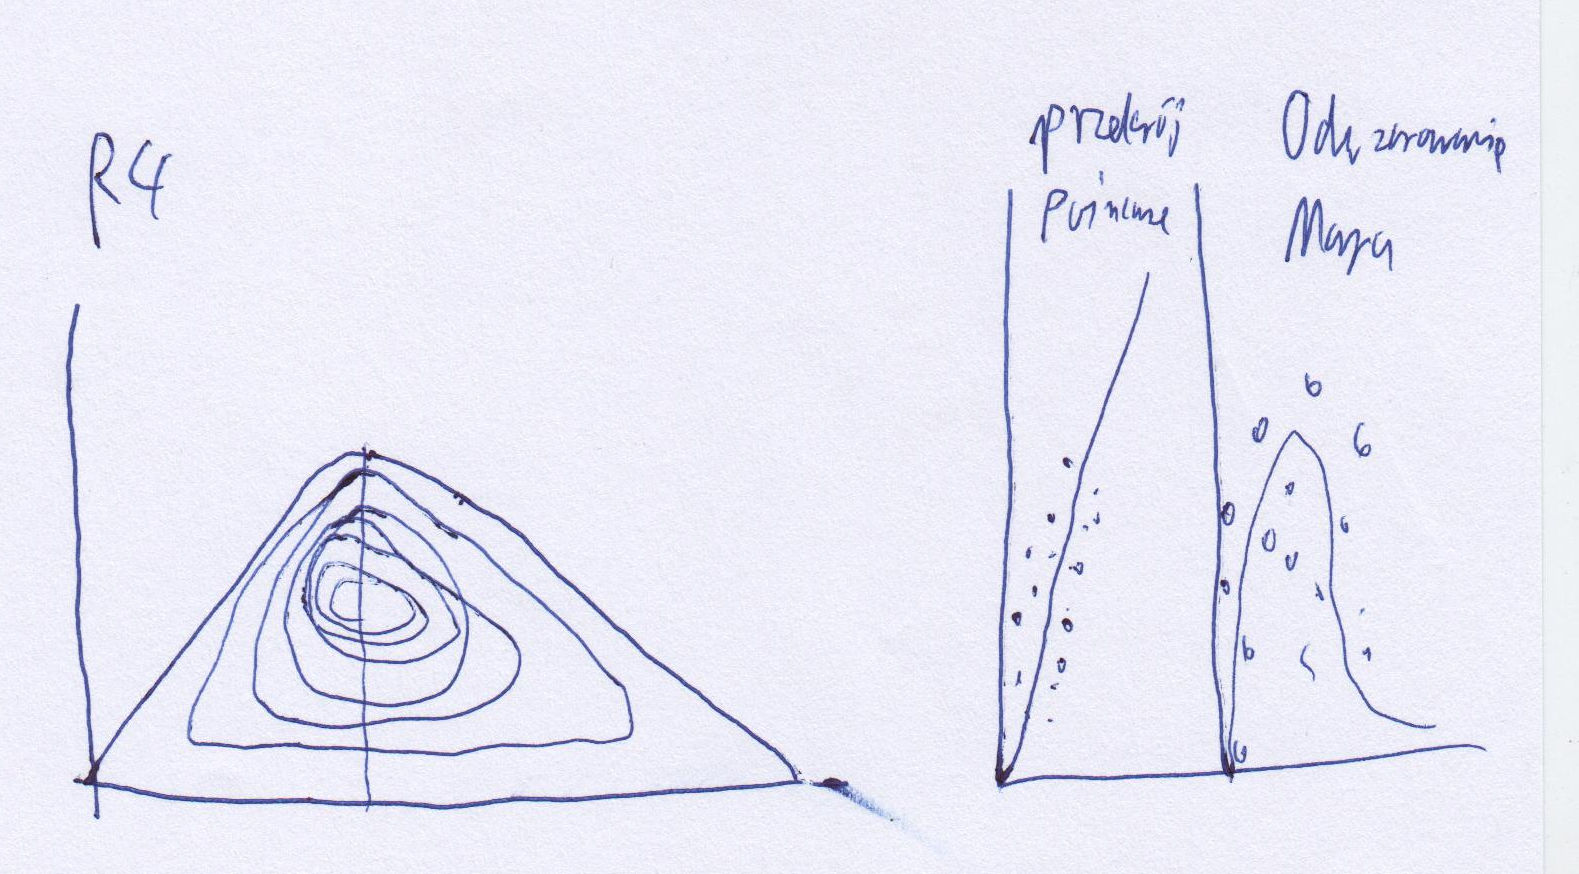 R4
przekrój
Poincare
Odwzorowanie
Maya